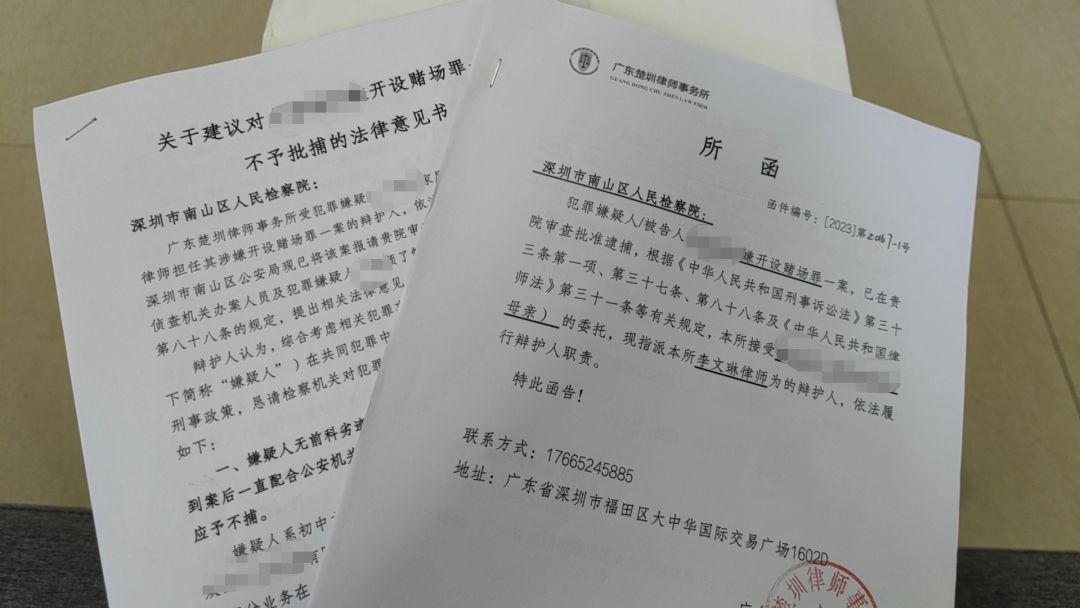 关于建议对
开设赌场罪
不予批捕的法律意见书
深圳市南山区人民检察院：
广东楚圳律师事务所受犯罪嫌疑
律师担任其涉嫌开设赌场罪一案的辩护人，依法
深圳市南山区公安局现已将该案报请贵院审
侦查机关办案人员及犯罪嫌疑人
第八十八条的规定，提出相关法律意见
辩护人认为，综合考虑相关犯罪
下简称“嫌疑人”）在共同犯罪中
刑事政策，恳请检察机关对犯罪
如下：
一、嫌疑人无前科劣迹
到案后一直配合公安机关
应予不捕。
嫌疑人系初中
业务在
广东楚圳律师事务所
GUANG DONG CHU ZHEN LAW FIRM
所 函
函件编号：[2023]第2067-1号
深圳市南山区人民检察院：
犯罪嫌疑人/被告人
嫌开设赌场罪一案，已在贵
院审查批准逮捕，根据《中华人民共和国刑事诉讼法》第三十
三条第一项、第三十七条、第八十八条及《中华人民共和国律
师法》第三十一条等有关规定，本所接受
母亲）的委托，现指派本所李文琳律师为的辩护人，依法履
行辩护人职责。
特此函告！
联系方式：17665245885
地址：广东省深圳市福田区大中华国际交易广场1602D
圳律师事